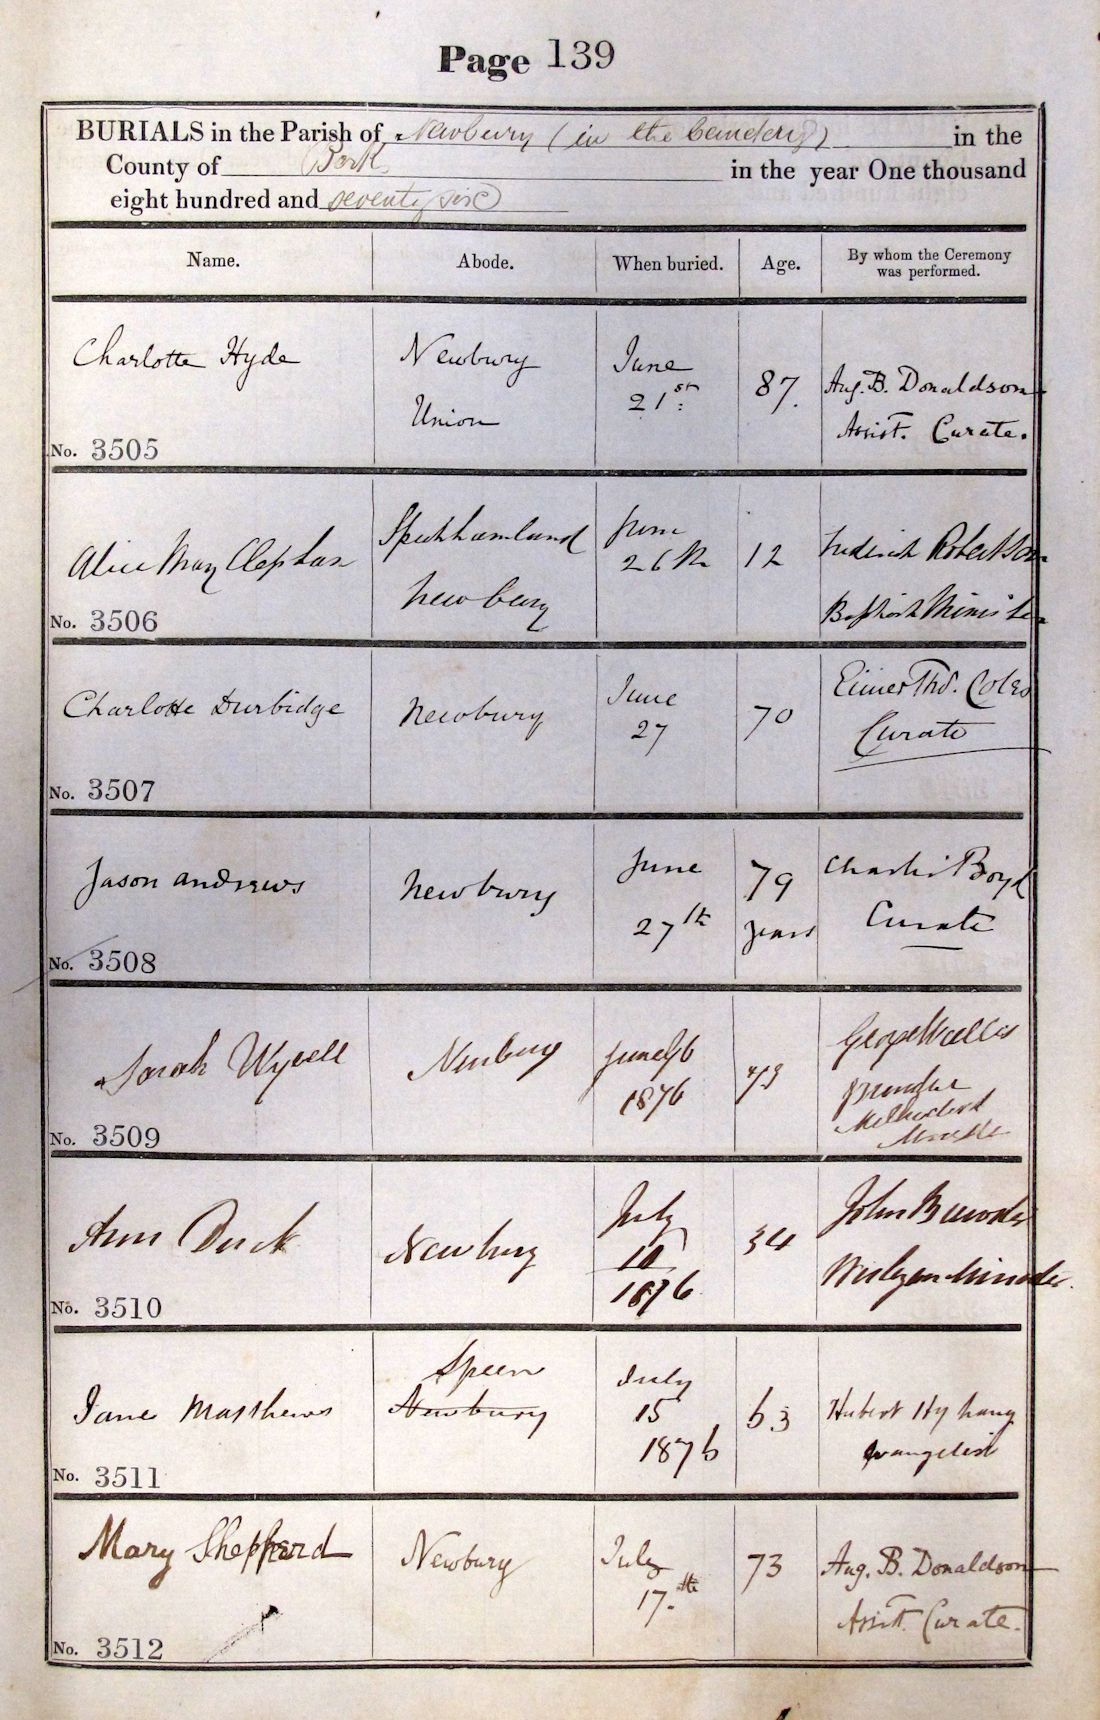 Page 139
BURIALS in the Parish of Newbury (in the Cemetery) in the
County of Berk in the year One thousand
eight hundred and seventy six
Name. Abode. When buried. Age. By whom the Ceremony was performed.
Charlotte Hyde
Newbury
Union
June
21st
87.
Aug. B. Donaldson
Assist. Curate.
No. 3505
Alice May Clephan
Speenhamland
Newbury
June
26th
12
Frederick Robertson
Baptist Minister
No. 3506
Charlotte Durbidge
Newbury
June
27
70
Thos. Coles
Curate
No. 3507
Jason Andrews
Newbury
June
27th
79
years
Charles Boyd
Curate
No. 3508
Sarah Wyvell
Newbury
June
1876
73
George Wells
Methodist
Minister
No. 3509
Ann Duck
Newbury
July
10
1876
34
John
Wesleyan Minister.
No. 3510
Jane Matthews
Speen
Newbury
July
15
1876
63
Hubert Hy
Evangelist
No. 3511
Mary Shepperd
Newbury
July
17.th
73
Aug. B. Donaldson
Assist. Curate.
No. 3512